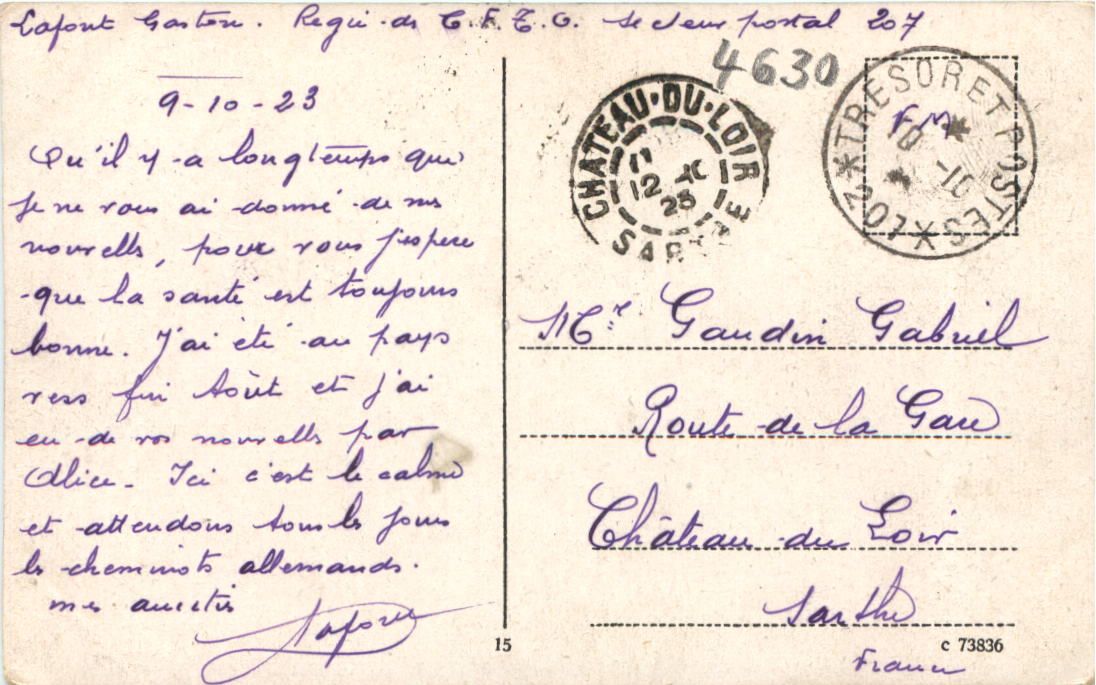 Lafont Gaston. Régie des C.F.T.O. Secteur postal 207
9-10-23
Qu'il y a longtemps que
je ne vous ai donné de mes
nouvelles, pour vous j'espère
que la santé est toujours
bonne. J'ai été au pays
vers fin Août et j'ai
eu de vos nouvelles par
Alice. Ici c'est le calme
et attendons tous les jours
les cheminots allemands.
mes amitiés
Lafont
4630
CHATEAU-DU-LOIR
11
12 -10
23
SARTHE
*TRESOR ET POSTES*
FM
10 -10
*207*
Mr Gaudin Gabriel
Route de la Gare
Château du Loir
Sarthe
France
15
c 73836